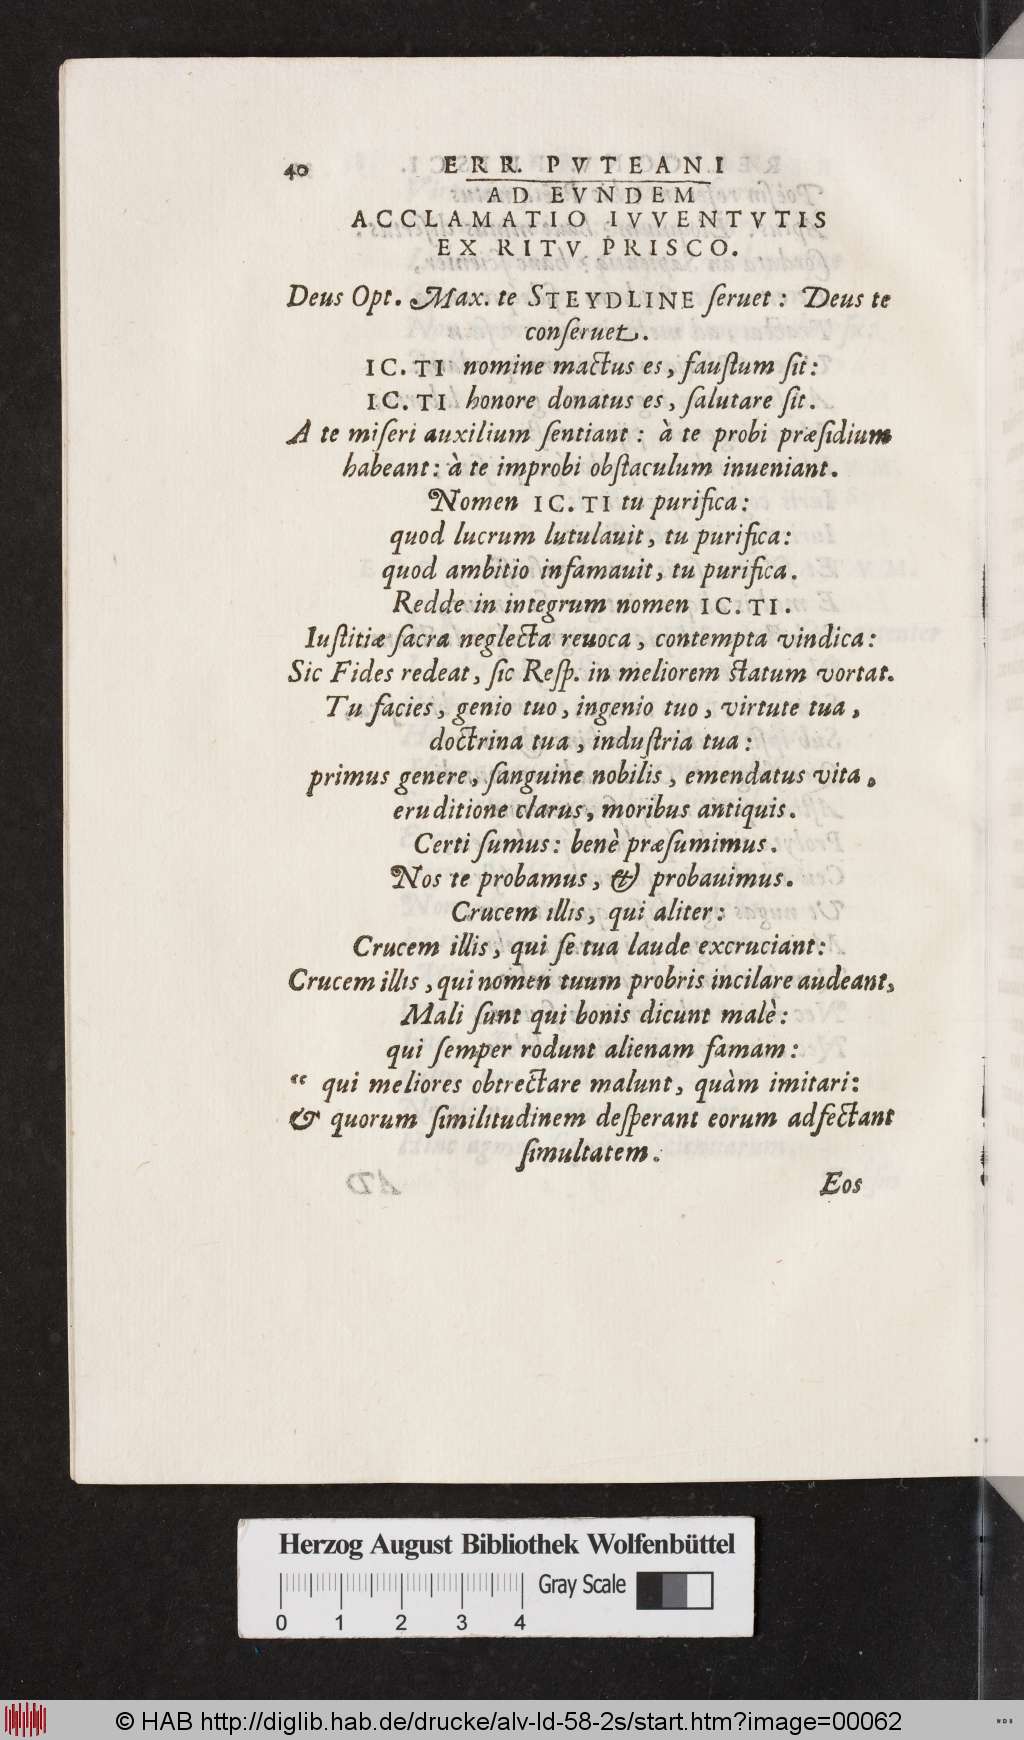 40 ERR. PVTEANI
AD EVNDEM
ACCLAMATIO IVVENTVTIS
EX RITV PRISCO.
Deus Opt. Max. te STEYDLINE ſeruet: Deus te
conſeruet.
IC.TI nomine mactus es, fauſtum ſit:
IC.TI honore donatus es, ſalutare ſit.
A te miſeri auxilium ſentiant: à te probi præſidium
habeant: à te improbi obſtaculum inueniant.
Nomen IC.TI tu purifica:
quod lucrum lutulauit, tu purifica:
quod ambitio infamauit, tu purifica.
Redde in integrum nomen IC.TI.
Iuſtitiæ ſacra neglecta reuoca, contempta vindica:
Sic Fides redeat, ſic Reſp. in meliorem ſtatum vortat.
Tu facies, genio tuo, ingenio tuo, virtute tua,
doctrina tua, induſtria tua:
primus genere, ſanguine nobilis, emendatus vita,
eruditione clarus, moribus antiquis.
Certi ſumus: benè præſumimus.
Nos te probamus, & probauimus.
Crucem illis, qui aliter:
Crucem illis, qui ſe tua laude excruciant:
Crucem illis, qui nomen tuum probris incilare audeant,
Mali ſunt qui bonis dicunt malè:
qui ſemper rodunt alienam famam:
“ qui meliores obtrectare malunt, quàm imitari:
& quorum ſimilitudinem deſperant eorum adfectant
ſimultatem.
Eos
Herzog August Bibliothek Wolfenbüttel
Gray Scale
0 1 2 3 4
© HAB http://diglib.hab.de/drucke/alv-ld-58-2s/start.htm?image=00062